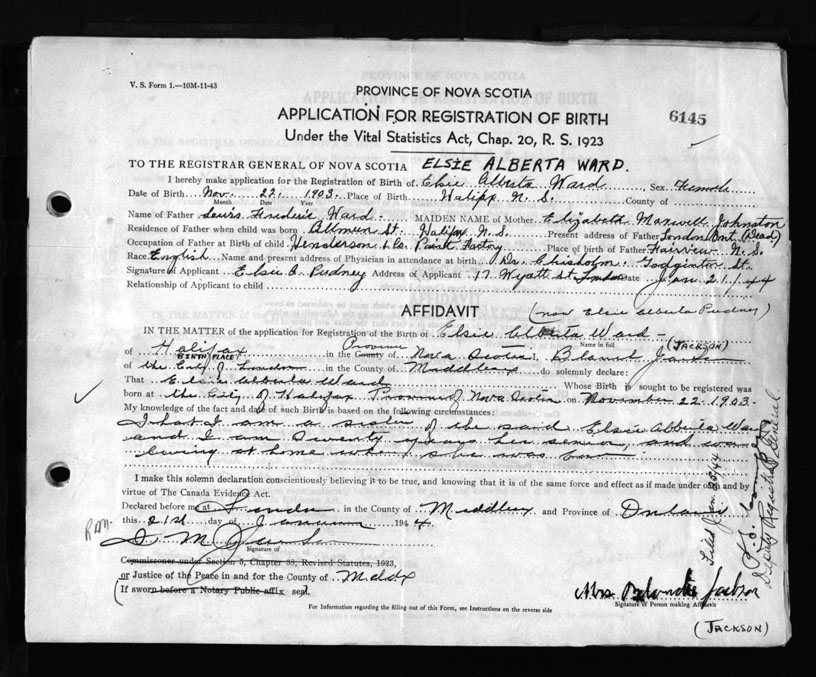 V. S. Form 1.—10M-11-43
PROVINCE OF NOVA SCOTIA
APPLICATION FOR REGISTRATION OF BIRTH
6145
Under the Vital Statistics Act, Chap. 20, R. S. 1923
TO THE REGISTRAR GENERAL OF NOVA SCOTIA ELSIE ALBERTA WARD.
I hereby make application for the Registration of Birth of Elsie Alberta Ward, Sex Female
Date of Birth Nov. 22. 1903. Place of Birth Halifax N. S. County of
Month Date Year
Name of Father Frederic Ward. MAIDEN NAME of Mother Elizabeth Maxwell Johnston
Residence of Father when child was born St. Halifax N. S. Present address of Father London Ont (Dead)
Occupation of Father at Birth of child Henderson & Co. Paint Factory Place of birth of Father Fairview N. S.
Race English Name and present address of Physician in attendance at birth Dr. Chisholm. St.
Signature of Applicant Elsie A. Pudney Address of Applicant 17 Wyatt St London Date Jan. 21/44
Relationship of Applicant to child
AFFIDAVIT (now Elsie Alberta Pudney)
IN THE MATTER of the application for Registration of the Birth of Elsie Alberta Ward -
Name in full (JACKSON)
of Halifax in the County Province of Nova Scotia I,
BIRTH PLACE
of the City of London in the County of Middlesex do solemnly declare:
That Elsie Alberta Ward Whose Birth is sought to be registered was
born at the City of Halifax Province of Nova Scotia on November 22 1903.
My knowledge of the fact and date of such Birth is based on the following circumstances:
That I am a sister of the said Elsie Alberta Ward
and I am Twenty years her senior, and was
living at home when she was born
I make this solemn declaration conscientiously believing it to be true, and knowing that it is of the same force and effect as if made under oath and by
virtue of The Canada Evidence Act.
Declared before me at London in the County of Middlesex and Province of Ontario
this 21st day of January 1944.
Signature of
Commissioner under Section 5, Chapter 33, Revised Statutes, 1923,
or Justice of the Peace in and for the County of Middx
(If sworn before a Notary Public affix seal.
Mrs Jackson
Signature of Person making Affidavit
(JACKSON)
For Information regarding the filling out of this Form, see Instructions on the reverse side
Filed Jan.
Deputy Registrar General